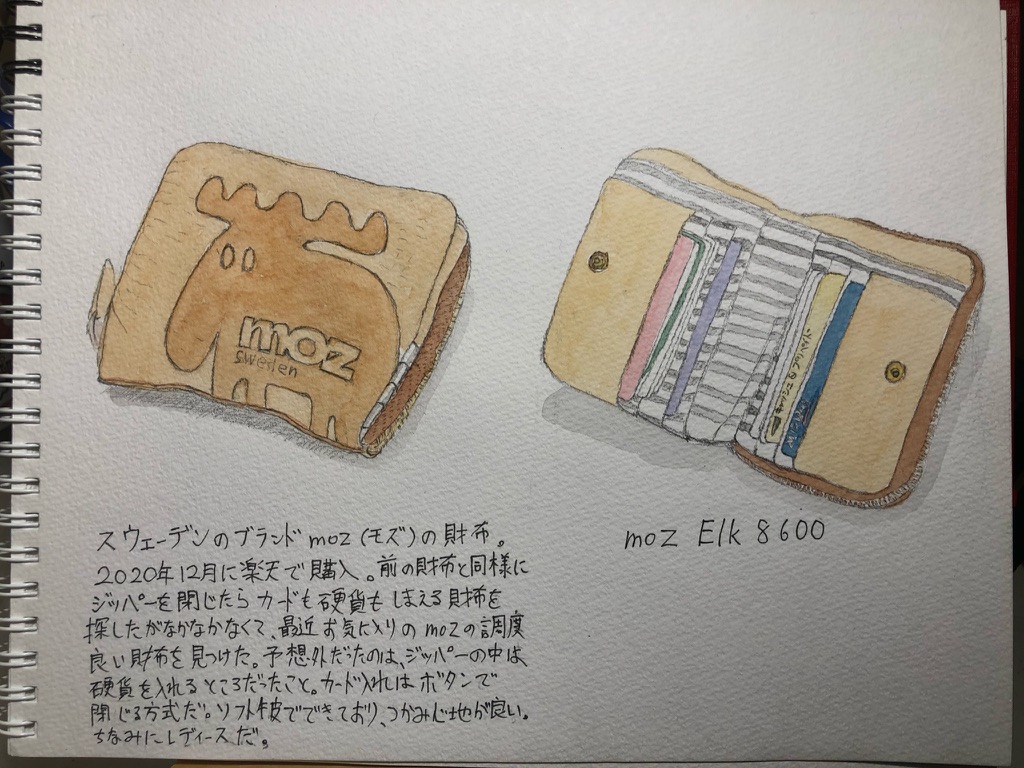 moz
sweden
スウェーデンのブランドmoz(モズ)の財布。
2020年12月に楽天で購入。前の財布と同様に
ジッパーを閉じたらカードも硬貨もしまえる財布を
探したがなかなかなくて、最近お気に入りのmozの調度
良い財布を見つけた。予想外だったのは、ジッパーの中は
硬貨を入れるところだったこと。カード入れはボタンで
閉じる方式だ。ソフト牛皮でできており、つかみ心地が良い。
ちなみにレディースだ。
moz Elk 8600